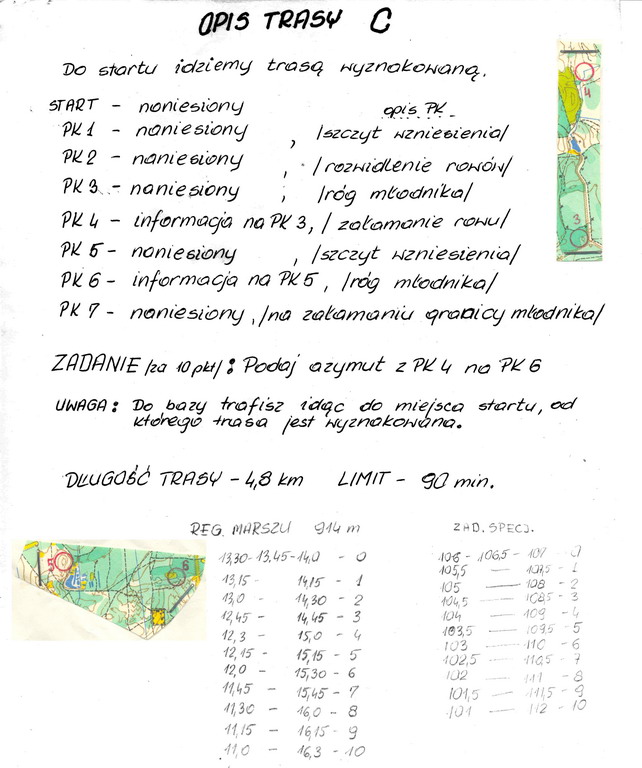 OPIS TRASY C
Do startu idziemy trasą wyznakowaną.
START - naniesiony
opis PK
PK 1 - naniesiony , /szczyt wzniesienia/
PK 2 - naniesiony , /rozwidlenie rowów/
PK 3 - naniesiony , /róg młodnika/
PK 4 - informacja na PK 3, / załamanie rowu/
PK 5 - naniesiony , /szczyt wzniesienia/
PK 6 - informacja na PK 5, /róg młodnika/
PK 7 - naniesiony, /na załamaniu granicy młodnika/
ZADANIE /za 10 pkt/ : Podaj azymut z PK 4 na PK 6
UWAGA : Do bazy trafisz idąc do miejsca startu, od
którego trasa jest wyznakowana.
DŁUGOŚĆ TRASY - 4,8 km LIMIT - 90 min.
4
3
5
6
REG. MARSZU 914 m
13,30 - 13,45 - 14,0 - 0
13,15 - 14,15 - 1
13,0 - 14,30 - 2
12,45 - 14,45 - 3
12,3 - 15,0 - 4
12,15 - 15,15 - 5
12,0 - 15,30 - 6
11,45 - 15,45 - 7
11,30 - 16,0 - 8
11,15 - 16,15 - 9
11,0 - 16,3 - 10
ZAD. SPECJ.
106 - 106,5 - 107 - 0
105,5 - 107,5 - 1
105 - 108 - 2
104,5 - 108,5 - 3
104 - 109 - 4
103,5 - 109,5 - 5
103 - 110 - 6
102,5 - 110,5 - 7
102 - 111 - 8
101,5 - 111,5 - 9
101 - 112 - 10